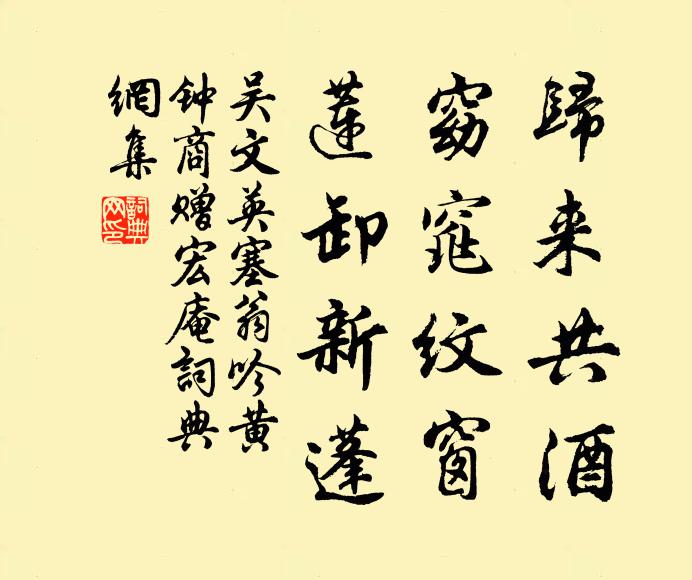 歸来共酒
窈窕紋窗
蓮卸新蓬
吴文英塞翁吟黄
钟商赠宏庵詞典
網集
詞典
网印